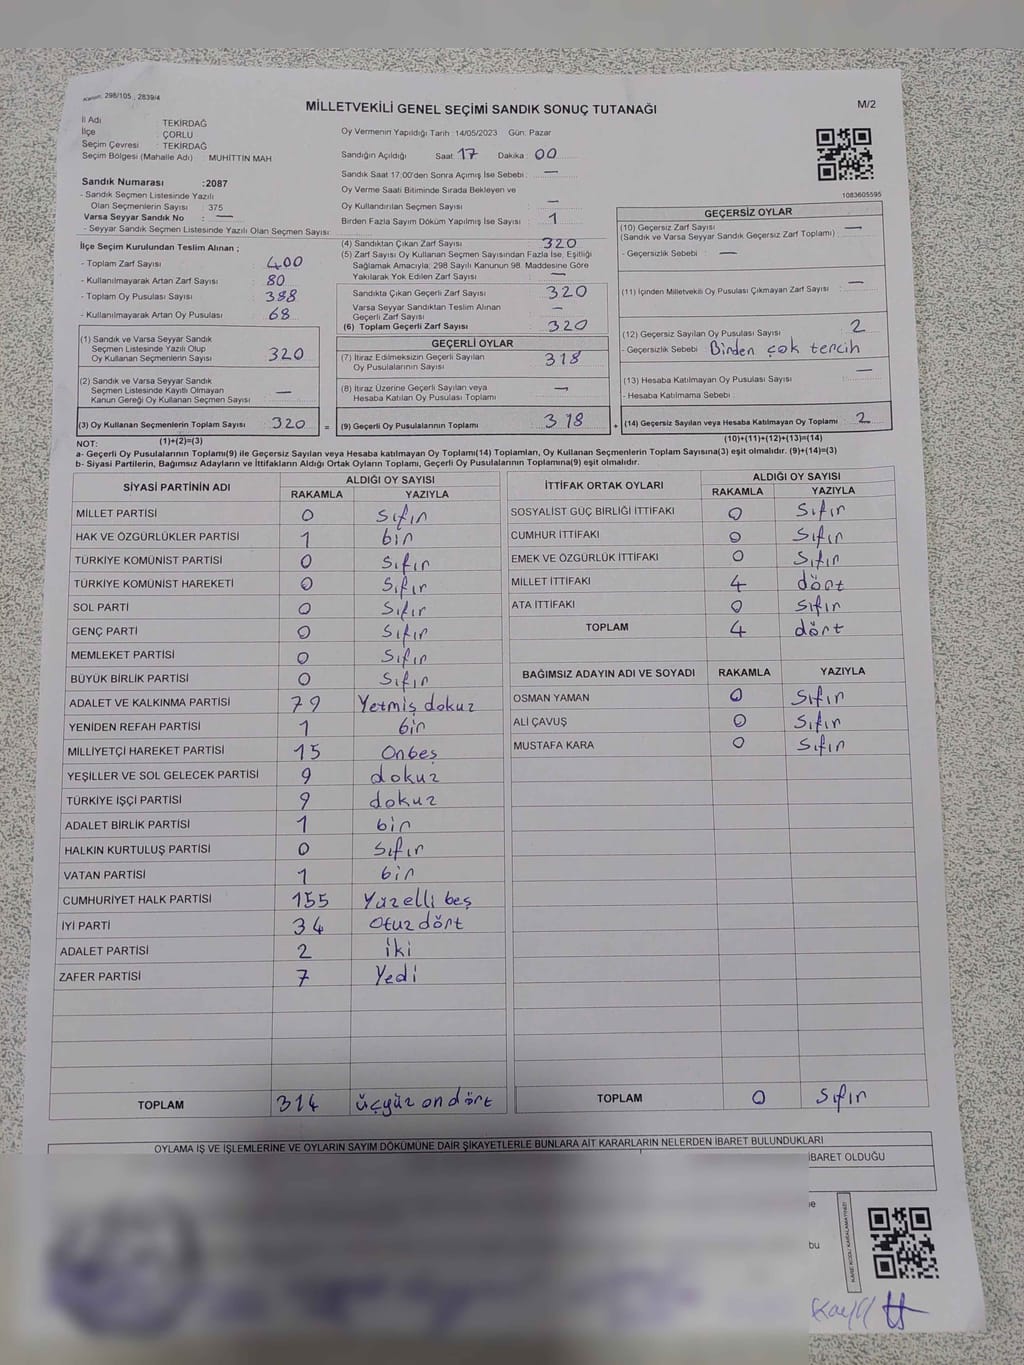 Kanun: 298/105, 2839/4
MİLLETVEKİLİ GENEL SEÇİMİ SANDIK SONUÇ TUTANAĞI
M/2
İl Adı : TEKİRDAĞ
İlçe : ÇORLU
Seçim Çevresi : TEKİRDAĞ
Seçim Bölgesi (Mahalle Adı) MUHİTTİN MAH
Sandık Numarası :2087
- Sandık Seçmen Listesinde Yazılı
Olan Seçmenlerin Sayısı : 375
Varsa Seyyar Sandık No : —
- Seyyar Sandık Seçmen Listesinde Yazılı Olan Seçmen Sayısı:
Oy Vermenin Yapıldığı Tarih :14/05/2023 Gün: Pazar
Sandığın Açıldığı Saat: 17 Dakika: 00
Sandık Saat 17:00'den Sonra Açımış İse Sebebi : —
Oy Verme Saati Bitiminde Sırada Bekleyen ve
Oy Kullandırılan Seçmen Sayısı : —
Birden Fazla Sayım Döküm Yapılmış İse Sayısı : 1
1083605595
İlçe Seçim Kurulundan Teslim Alınan ;
- Toplam Zarf Sayısı : 400
- Kullanılmayarak Artan Zarf Sayısı : 80
- Toplam Oy Pusulası Sayısı : 388
- Kullanılmayarak Artan Oy Pusulası : 68
(1) Sandık ve Varsa Seyyar Sandık
Seçmen Listesinde Yazılı Olup
Oy Kullanan Seçmenlerin Sayısı : 320
(2) Sandık ve Varsa Seyyar Sandık
Seçmen Listesinde Kayıtlı Olmayan
Kanun Gereği Oy Kullanan Seçmen Sayısı : —
(3) Oy Kullanan Seçmenlerin Toplam Sayısı : 320 =
(1)+(2)=(3)
(4) Sandıktan Çıkan Zarf Sayısı : 320
(5) Zarf Sayısı Oy Kullanan Seçmen Sayısından Fazla İse, Eşitliği
Sağlamak Amacıyla; 298 Sayılı Kanunun 98. Maddesine Göre
Yakılarak Yok Edilen Zarf Sayısı : —
Sandıkta Çıkan Geçerli Zarf Sayısı : 320
Varsa Seyyar Sandıktan Teslim Alınan
Geçerli Zarf Sayısı : —
(6) Toplam Geçerli Zarf Sayısı : 320
GEÇERLİ OYLAR
(7) İtiraz Edimeksizin Geçerli Sayılan
Oy Pusulalarının Sayısı : 318
(8) İtiraz Üzerine Geçerli Sayılan veya
Hesaba Katılan Oy Pusulası Toplamı : —
(9) Geçerli Oy Pusulalarının Toplamı : 318 +
GEÇERSİZ OYLAR
(10) Geçersiz Zarf Sayısı
(Sandık ve Varsa Seyyar Sandık Geçersiz Zarf Toplamı) : —
- Geçersizlik Sebebi : —
(11) İçinden Milletvekili Oy Pusulası Çıkmayan Zarf Sayısı : —
(12) Geçersiz Sayılan Oy Pusulası Sayısı : 2
- Geçersizlik Sebebi : Binden çok tercih
(13) Hesaba Katılmayan Oy Pusulası Sayısı : —
- Hesaba Katılmama Sebebi :
(14) Geçersiz Sayılan veya Hesaba Katılmayan Oy Toplamı : 2
(10)+(11)+(12)+(13)=(14)
NOT:
a- Geçerli Oy Pusulalarının Toplamı(9) ile Geçersiz Sayılan veya Hesaba Katılmayan Oy Toplamı(14) Toplamları, Oy Kullanan Seçmenlerin Toplam Sayısına(3) eşit olmalıdır. (9)+(14)=(3)
b- Siyasi Partilerin, Bağımsız Adayların ve İttifakların Aldığı Ortak Oyların Toplamı, Geçerli Oy Pusulalarının Toplamına(9) eşit olmalıdır.
SİYASİ PARTİNİN ADI
ALDIĞI OY SAYISI
RAKAMLA YAZIYLA
MİLLET PARTİSİ 0 Sıfır
HAK VE ÖZGÜRLÜKLER PARTİSİ 1 bir
TÜRKİYE KOMÜNİST PARTİSİ 0 Sıfır
TÜRKİYE KOMÜNİST HAREKETİ 0 Sıfır
SOL PARTİ 0 Sıfır
GENÇ PARTİ 0 Sıfır
MEMLEKET PARTİSİ 0 Sıfır
BÜYÜK BİRLİK PARTİSİ 0 Sıfır
ADALET VE KALKINMA PARTİSİ 79 Yetmiş dokuz
YENİDEN REFAH PARTİSİ 1 bir
MİLLİYETÇİ HAREKET PARTİSİ 15 Onbeş
YEŞİLLER VE SOL GELECEK PARTİSİ 9 dokuz
TÜRKİYE İŞÇİ PARTİSİ 9 dokuz
ADALET BİRLİK PARTİSİ 1 bir
HALKIN KURTULUŞ PARTİSİ 0 Sıfır
VATAN PARTİSİ 1 bir
CUMHURİYET HALK PARTİSİ 155 Yüzelli beş
İYİ PARTİ 34 Otuz dört
ADALET PARTİSİ 2 iki
ZAFER PARTİSİ 7 Yedi
TOPLAM 314 üçyüz on dört
İTTİFAK ORTAK OYLARI
ALDIĞI OY SAYISI
RAKAMLA YAZIYLA
SOSYALİST GÜÇ BİRLİĞİ İTTİFAKI 0 Sıfır
CUMHUR İTTİFAKI 0 Sıfır
EMEK VE ÖZGÜRLÜK İTTİFAKI 0 Sıfır
MİLLET İTTİFAKI 4 dört
ATA İTTİFAKI 0 Sıfır
TOPLAM 4 dört
BAĞIMSIZ ADAYIN ADI VE SOYADI RAKAMLA YAZIYLA
OSMAN YAMAN 0 Sıfır
ALİ ÇAVUŞ 0 Sıfır
MUSTAFA KARA 0 Sıfır
TOPLAM 0 Sıfır
OYLAMA İŞ VE İŞLEMLERİNE VE OYLARIN SAYIM DÖKÜMÜNE DAİR ŞİKAYETLERLE BUNLARA AİT KARARLARIN NELERDEN İBARET BULUNDUKLARI
İBARET OLDUĞU
bu
KAREKODU KARALAMAYINIZ!